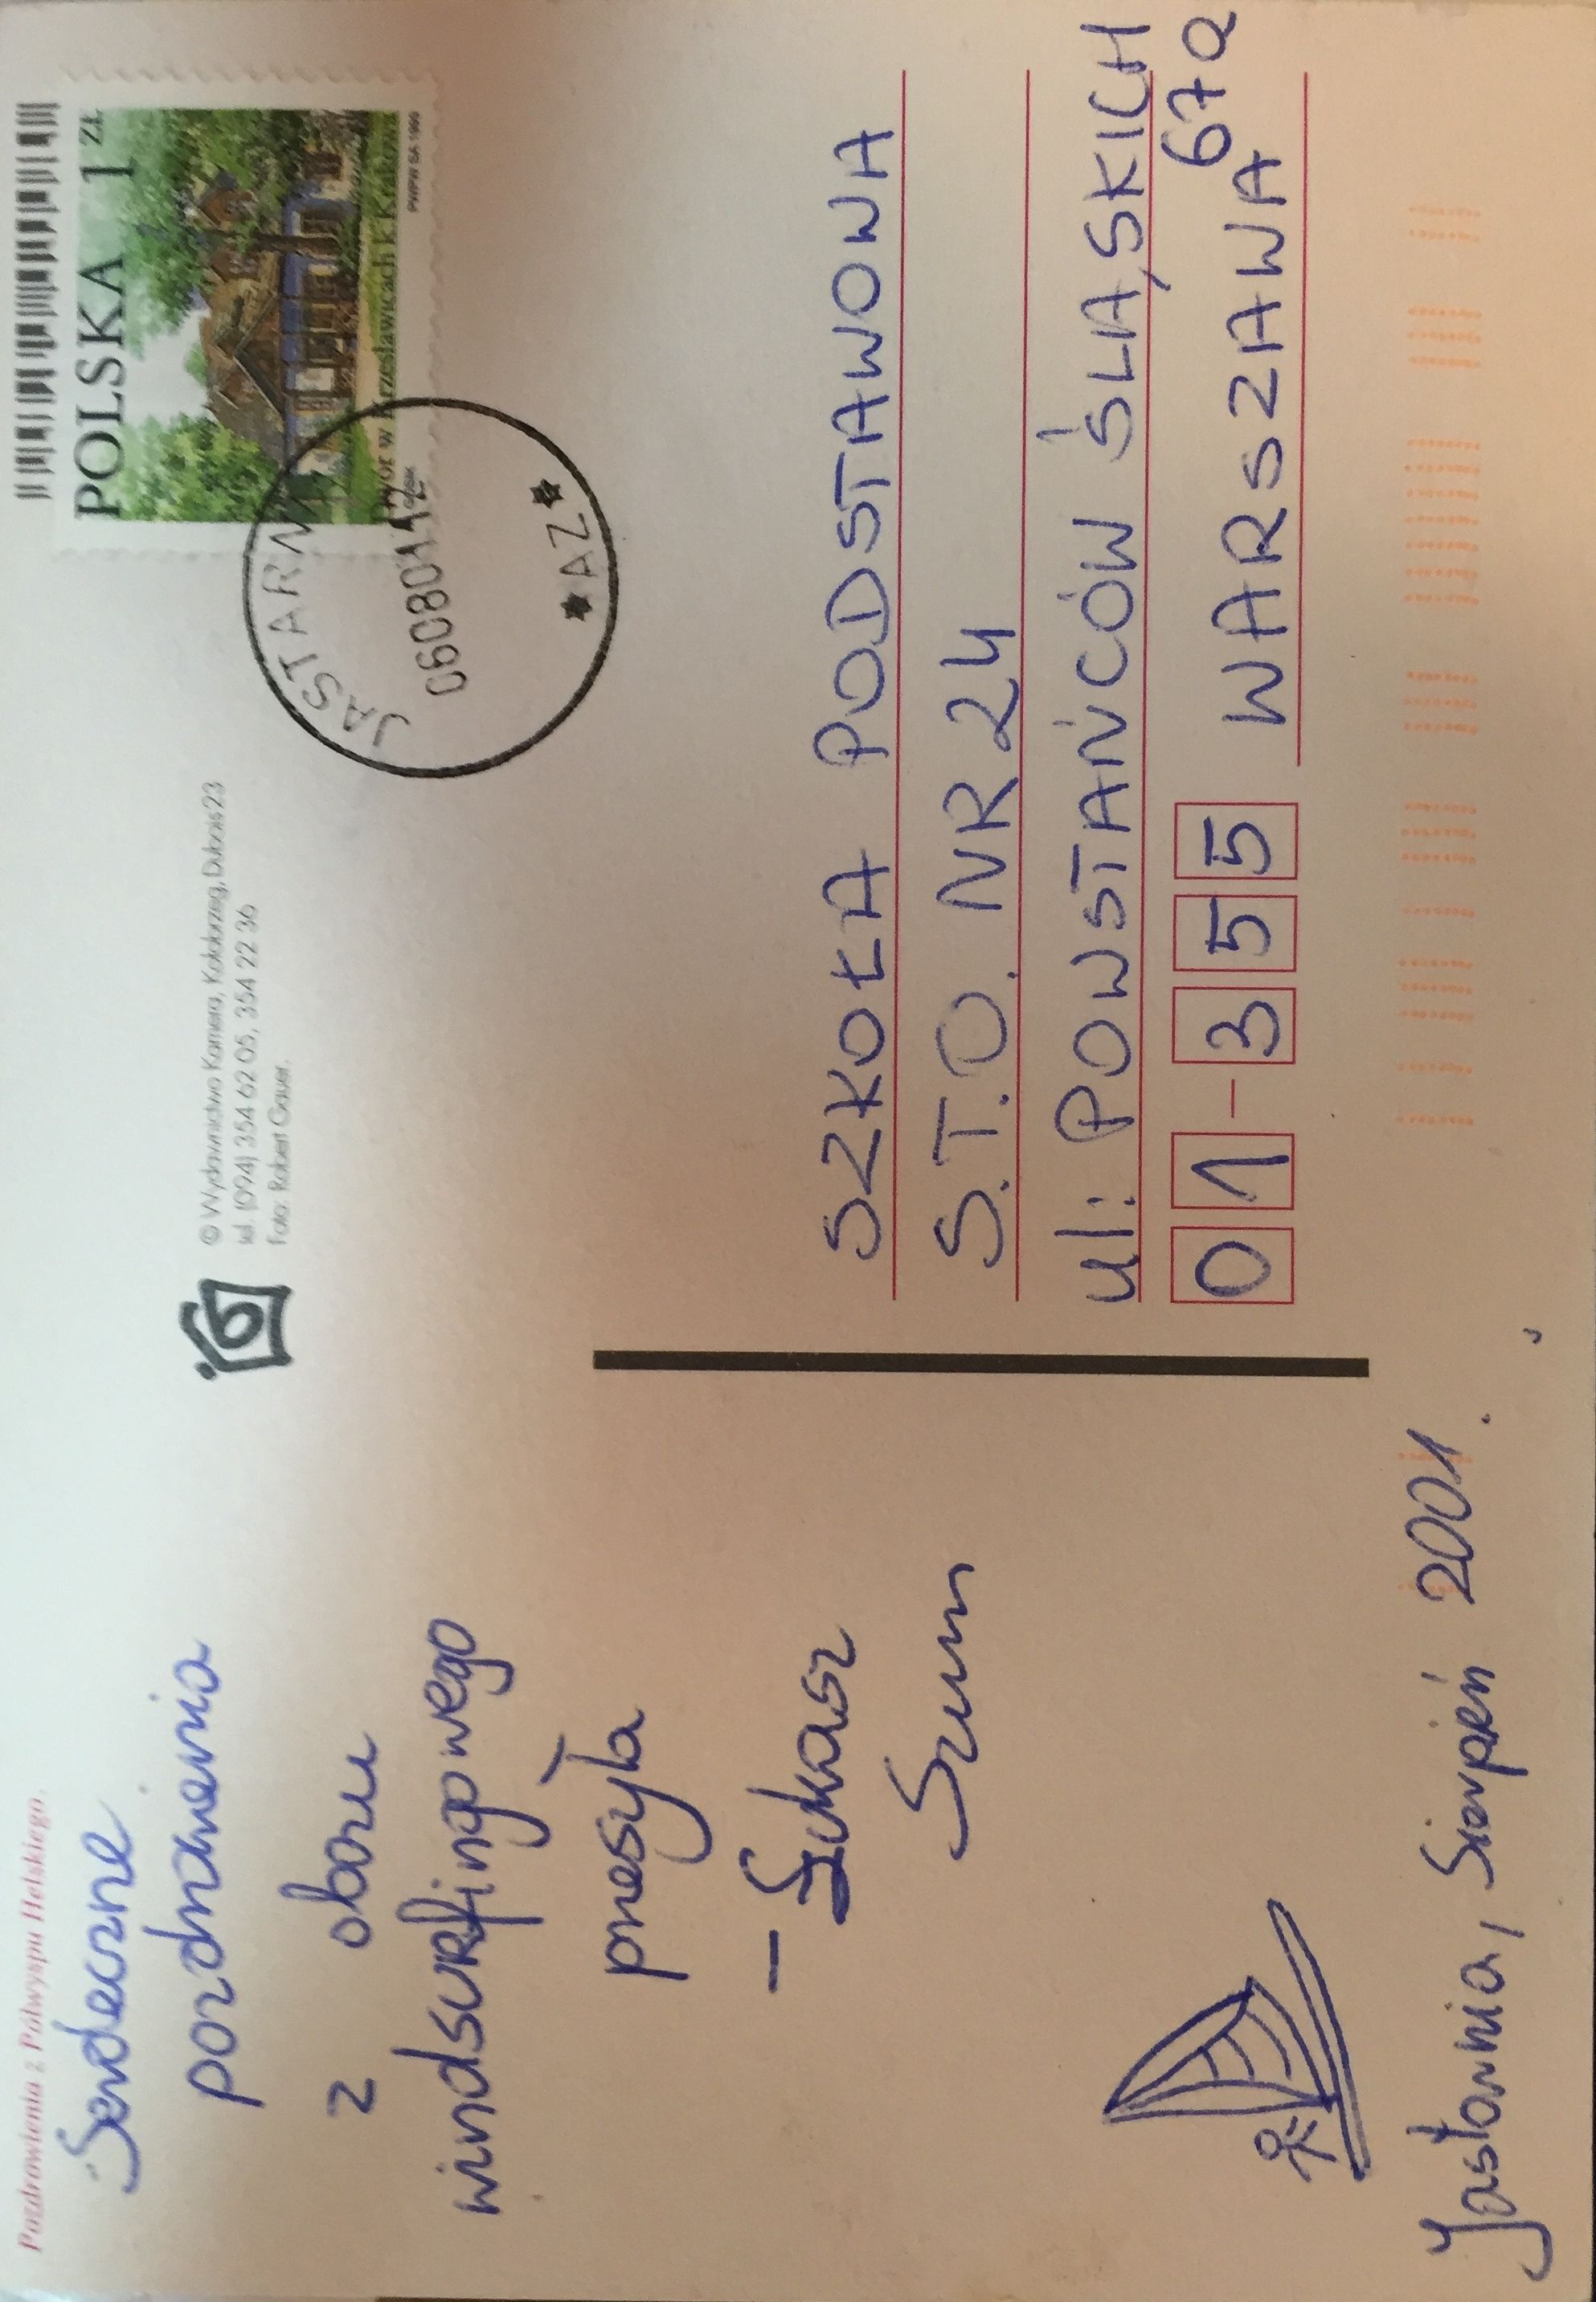 Pozdrowienia z Półwyspu Helskiego.
Serdeczne
pozdrowienia
z obozu
windsurfingowego
przesyła
– Łukasz
Szum
Jastarnia, Sierpień 2001.
© Wydawnictwo Kamera, Kołobrzeg, Dubois 23
tel. (094) 354 62 05, 354 22 36
Foto: Robert Gauer.
POLSKA 1 ZŁ
Dwór w Krzesławicach k. Krakowa
PWPW SA 1999
JASTARNIA
060801
*AZ*
SZKOŁA PODSTAWOWA
S.T.O. NR 24
ul: POWSTAŃCÓW ŚLĄSKICH
67a
01-355 WARSZAWA